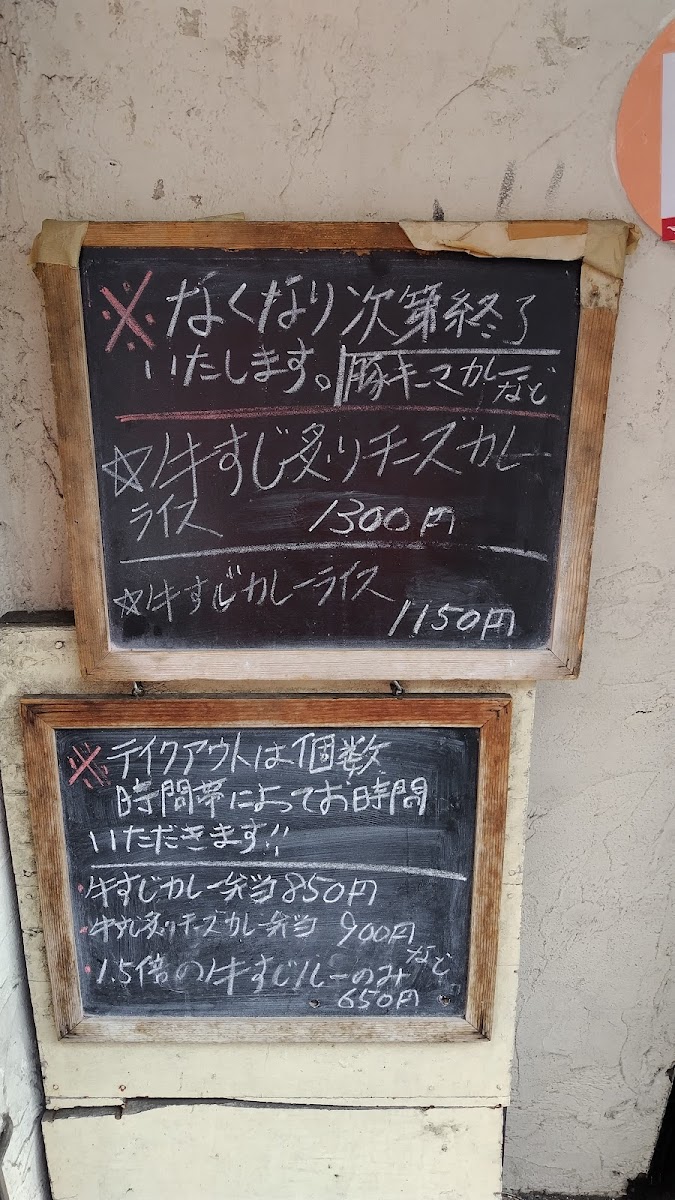 ※なくなり次第終了
いたします。豚キーマカレーなど
☆牛すじ炙りチーズカレー
ライス 1300円
☆牛すじカレーライス
1150円
※テイクアウトは個数
時間帯によってお時間
いただきます!!
・牛すじカレー弁当850円
・牛すじ炙りチーズカレー弁当 900円
・1.5倍の牛すじルーのみなど
650円